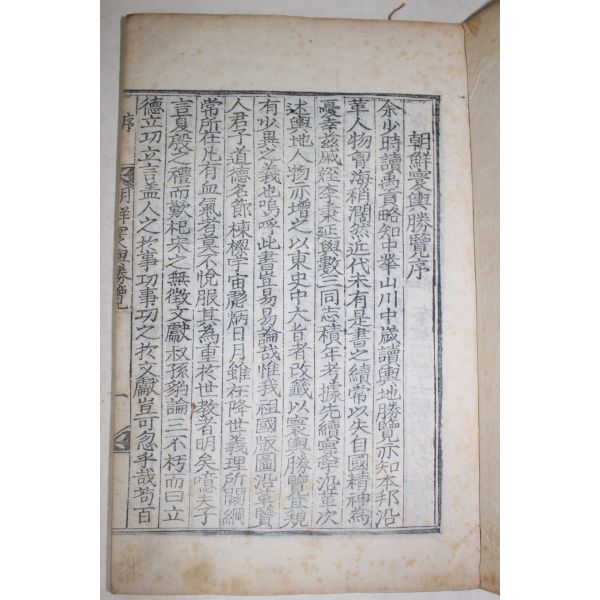 朝鮮寰輿勝覽序
余少時讀禹貢略知中華山川中歲讀輿地勝覽亦知本邦沿
革人物育海稍濶然近代未有是書之續常以失自國精神爲
憂幸玆戚姪李秉延與數三同志積年考據先續寰宇沿革次
述輿地人物亦增之以東史中大旨者改籤以寰輿勝覽宜規
有少異之義也嗚呼此書豈易易論哉惟我祖國版圖沿革賢
人君子道德名節棟樑宇宙彪炳日月雖在降世義理所關綱
常所在凡有血氣者莫不悅服其爲重於世敎者明矣噫夫子
言夏殷之禮而歎杞宋之無徵文獻叔孫豹論三不朽而曰立
德立功立言盖人之於事功事功之於文獻豈可忽乎哉苟百
序
朝鮮寰輿勝覽
一